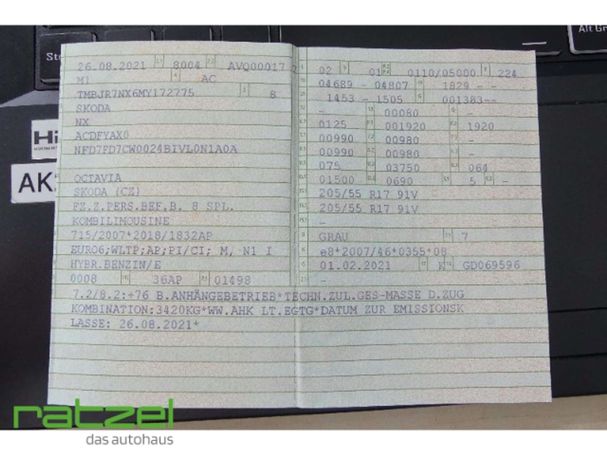 Alt Gr
Hi
AK
26.08.2021 8004 AVQ00017 2
M1 AC
TMBJR7NX6MY172775 8
SKODA
NX
ACDFYAX0
NFD7FD7CW0024BIVL0N1A0A
OCTAVIA
SKODA (CZ)
FZ.Z.PERS.BEF.B. 8 SPL.
KOMBILIMOUSINE
715/2007*2018/1832AP
EURO6;WLTP;AP;PI/CI; M, N1 I
HYBR.BENZIN/E
0008 36AP 01498
02 01 0110/05000 224
04689 - 04807 1829 --
1453 - 1505 001383--
- 00080 -
0125 001920 1920
00990 00980 -
00990 00980 -
075 03750 064
01500 0690 5 -
205/55 R17 91V
205/55 R17 91V
-
GRAU 7
e8*2007/46*0355*08
01.02.2021 K GD069596
7.2/8.2:+76 B.ANHÄNGEBETRIEB*TECHN.ZUL.GES-MASSE D.ZUG
KOMBINATION:3420KG*WW.AHK LT.EGTG*DATUM ZUR EMISSIONSK
LASSE: 26.08.2021*
ratzel
das autohaus